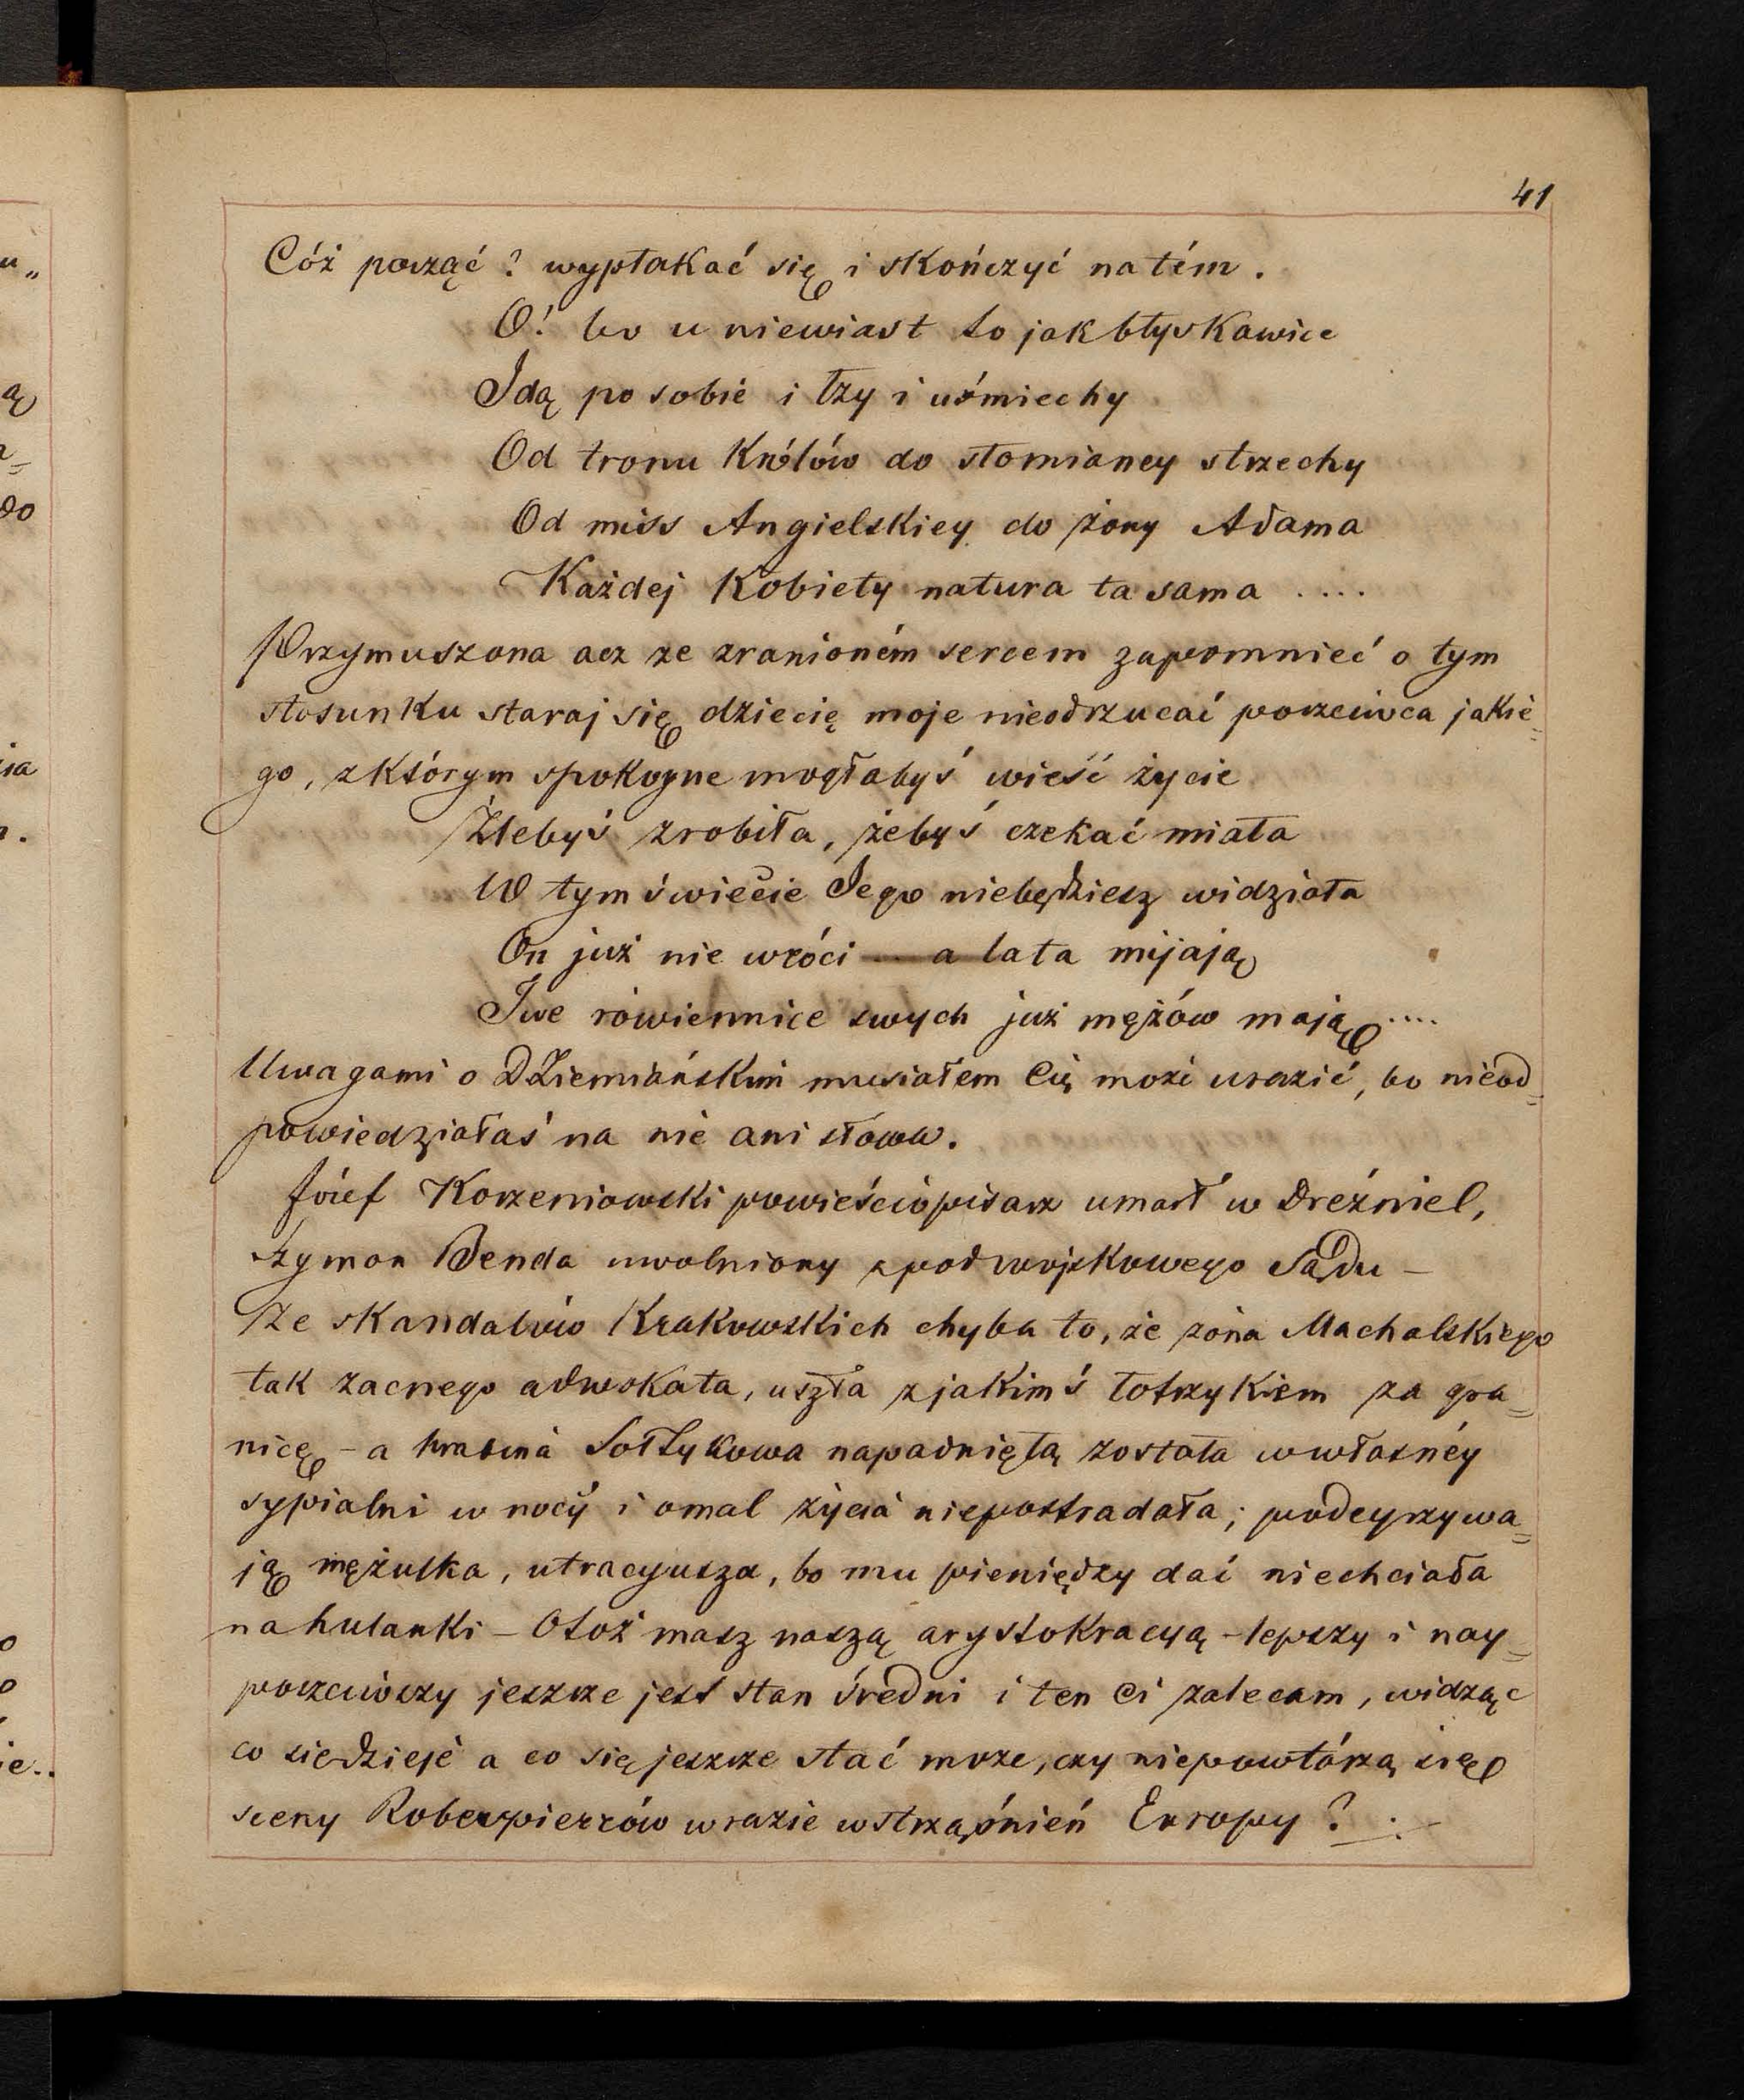 41
Cóż począć? wypłakać się i skończyć na tém.
O! bo u niewiast to jak błyskawice
Idą po sobie i łzy i uśmiechy
Od tronu Królów do słomianey strzechy
Od miss Angielskiey do żony Adama
Każdej Kobiety natura ta sama ....
Przymuszona acz ze zranioném sercem zapomnieć o tym
stosunku staraj się dziecię moje nieodrzucać poczciwca jakie=
go, z którym spokoyne mogłabyś wieść życie
Źlebyś zrobiła, żebyś czekać miała
W tym świecie Jego niebędziesz widziała
On już nie wróci — a lata mijają
Twe rówiennice swych już mężów mają ....
Uwagami o DZiemiańskim musiałem Cię może urazić, bo nieod=
powiedziałaś na nie ani słowa.
Józef Korzeniowski powieściopisarz umarł w Dreźniel,
Szymon Benda uwolniony zpod wojskowego Sądu —
Ze skandalów Krakowskich chyba to, że żona Machalskiego
tak zacnego adwokata, uszła z jakimś łotrzykiem za gra=
nicę - a hrabina Sołtykowa napadniętą została w własnéy
sypialni w nocy i omal życia niepostradała; podeyrzywa=
ją mężulka, utracyusza, bo mu pieniędzy dać niechciała
na hulanki - Otoż masz naszą arystokracyą - lepszy i nay=
poczciwszy jeszcze jest stan średni i ten Ci zalecam, widząc
co siedzieje a co się jeszcze stać może, czy niepowtórzą się
sceny Roberpierrów w razie wstrząśnień Europy?
u„
ą
do
ia
ie..